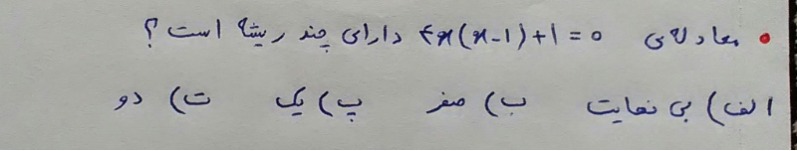 • معادله‌ی ۴x(x-1)+1=0 دارای چند ریشه است؟
الف) بی نهایت ب) صفر پ) یک ت) دو